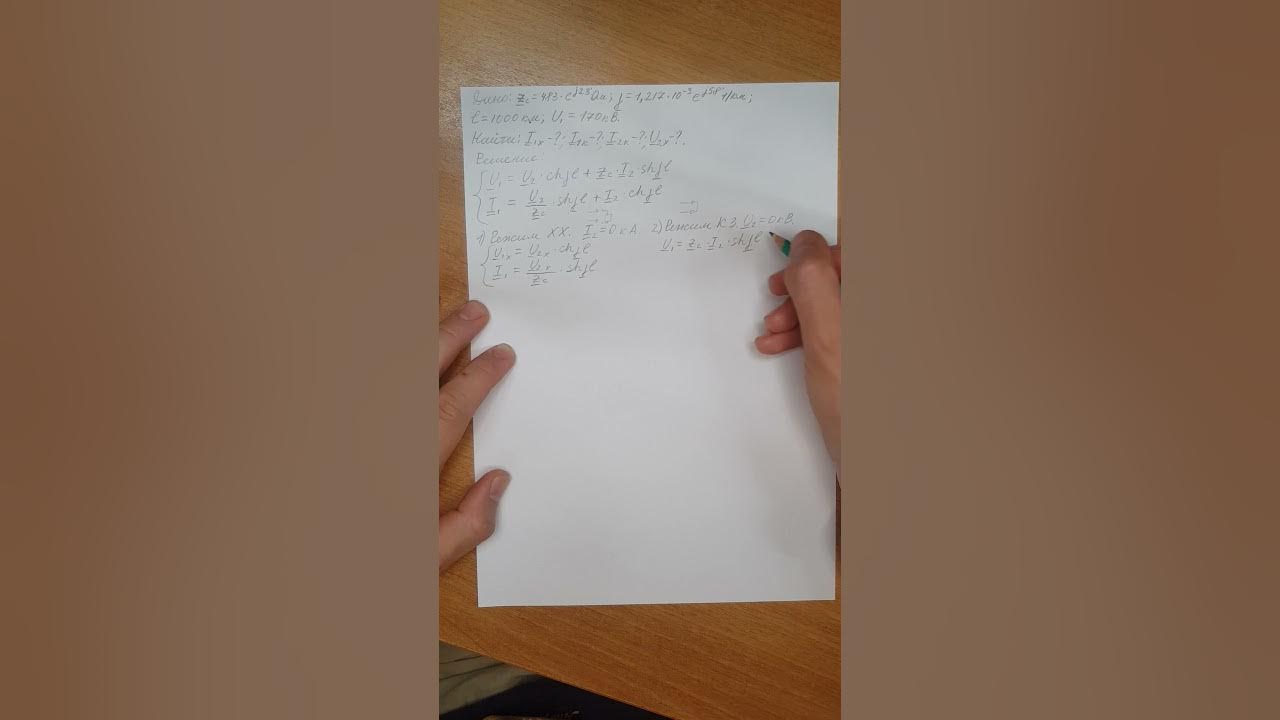 Дано: Z_c = 483 · e^j2,8° Ом; γ = 1,217 · 10⁻³ e^j58° 1/км;
ℓ = 1000 км; U₁ = 170 кВ.
Найти: I₁ₓ - ?; I₁ₖ - ?; I₂ₖ - ?; U₂ₓ - ?.
Решение
U₁ = U₂ · chγℓ + Z_c · I₂ · shγℓ
I₁ = U₂/Z_c · shγℓ + I₂ · chγℓ
1) Режим ХХ. I₂ = 0 кА.
U₁ₓ = U₂ₓ · chγℓ
I₁ = U₂ₓ/Z_c · shγℓ
2) Режим КЗ. U₂ = 0 кВ.
U₁ = Z_c · I₂ · shγℓ